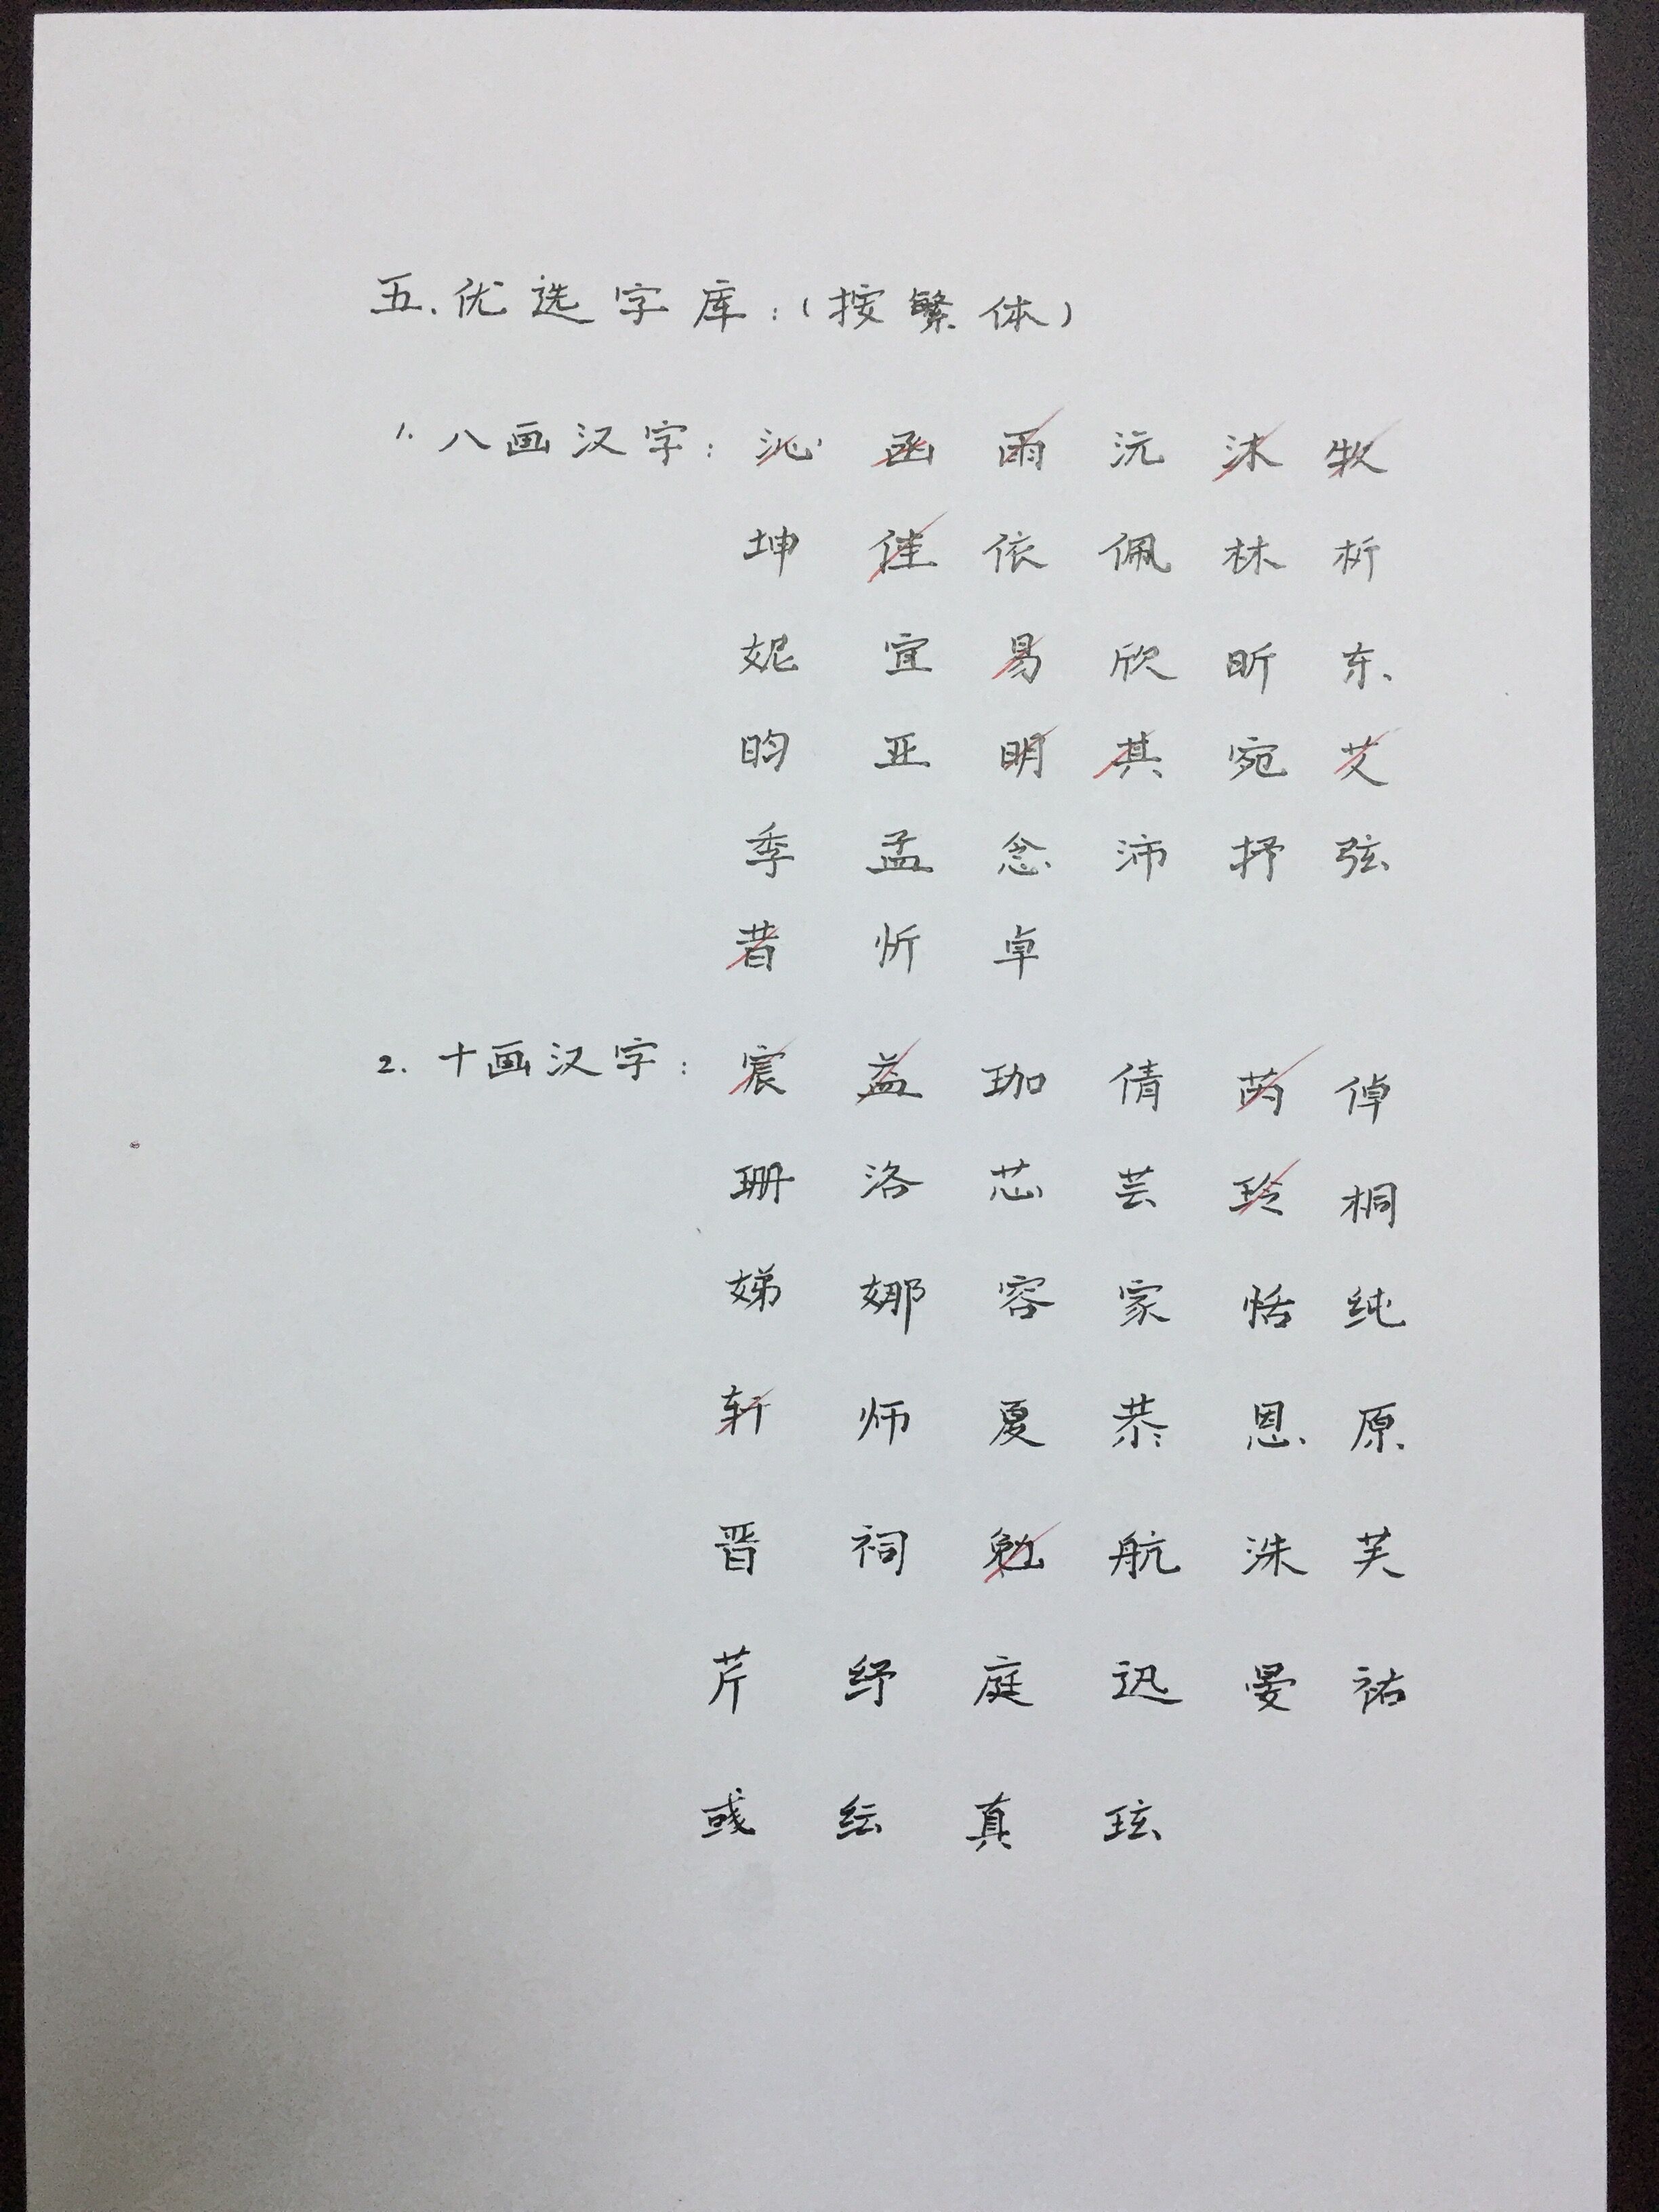 五.优选字库:(按繁体)
1.八画汉字:沁 函 雨 沅 沐 牧
坤 佳 依 佩 林 析
妮 宜 易 欣 昕 东
昀 亚 明 其 宛 艾
季 孟 念 沛 抒 弦
昔 忻 卓
2.十画汉字:宸 益 珈 倩 芮 倬
珊 洛 芯 芸 玲 桐
娣 娜 容 家 恬 纯
轩 师 夏 恭 恩 原
晋 祠 勉 航 洙 芙
芹 纾 庭 迅 晏 祐
彧 纭 真 玹